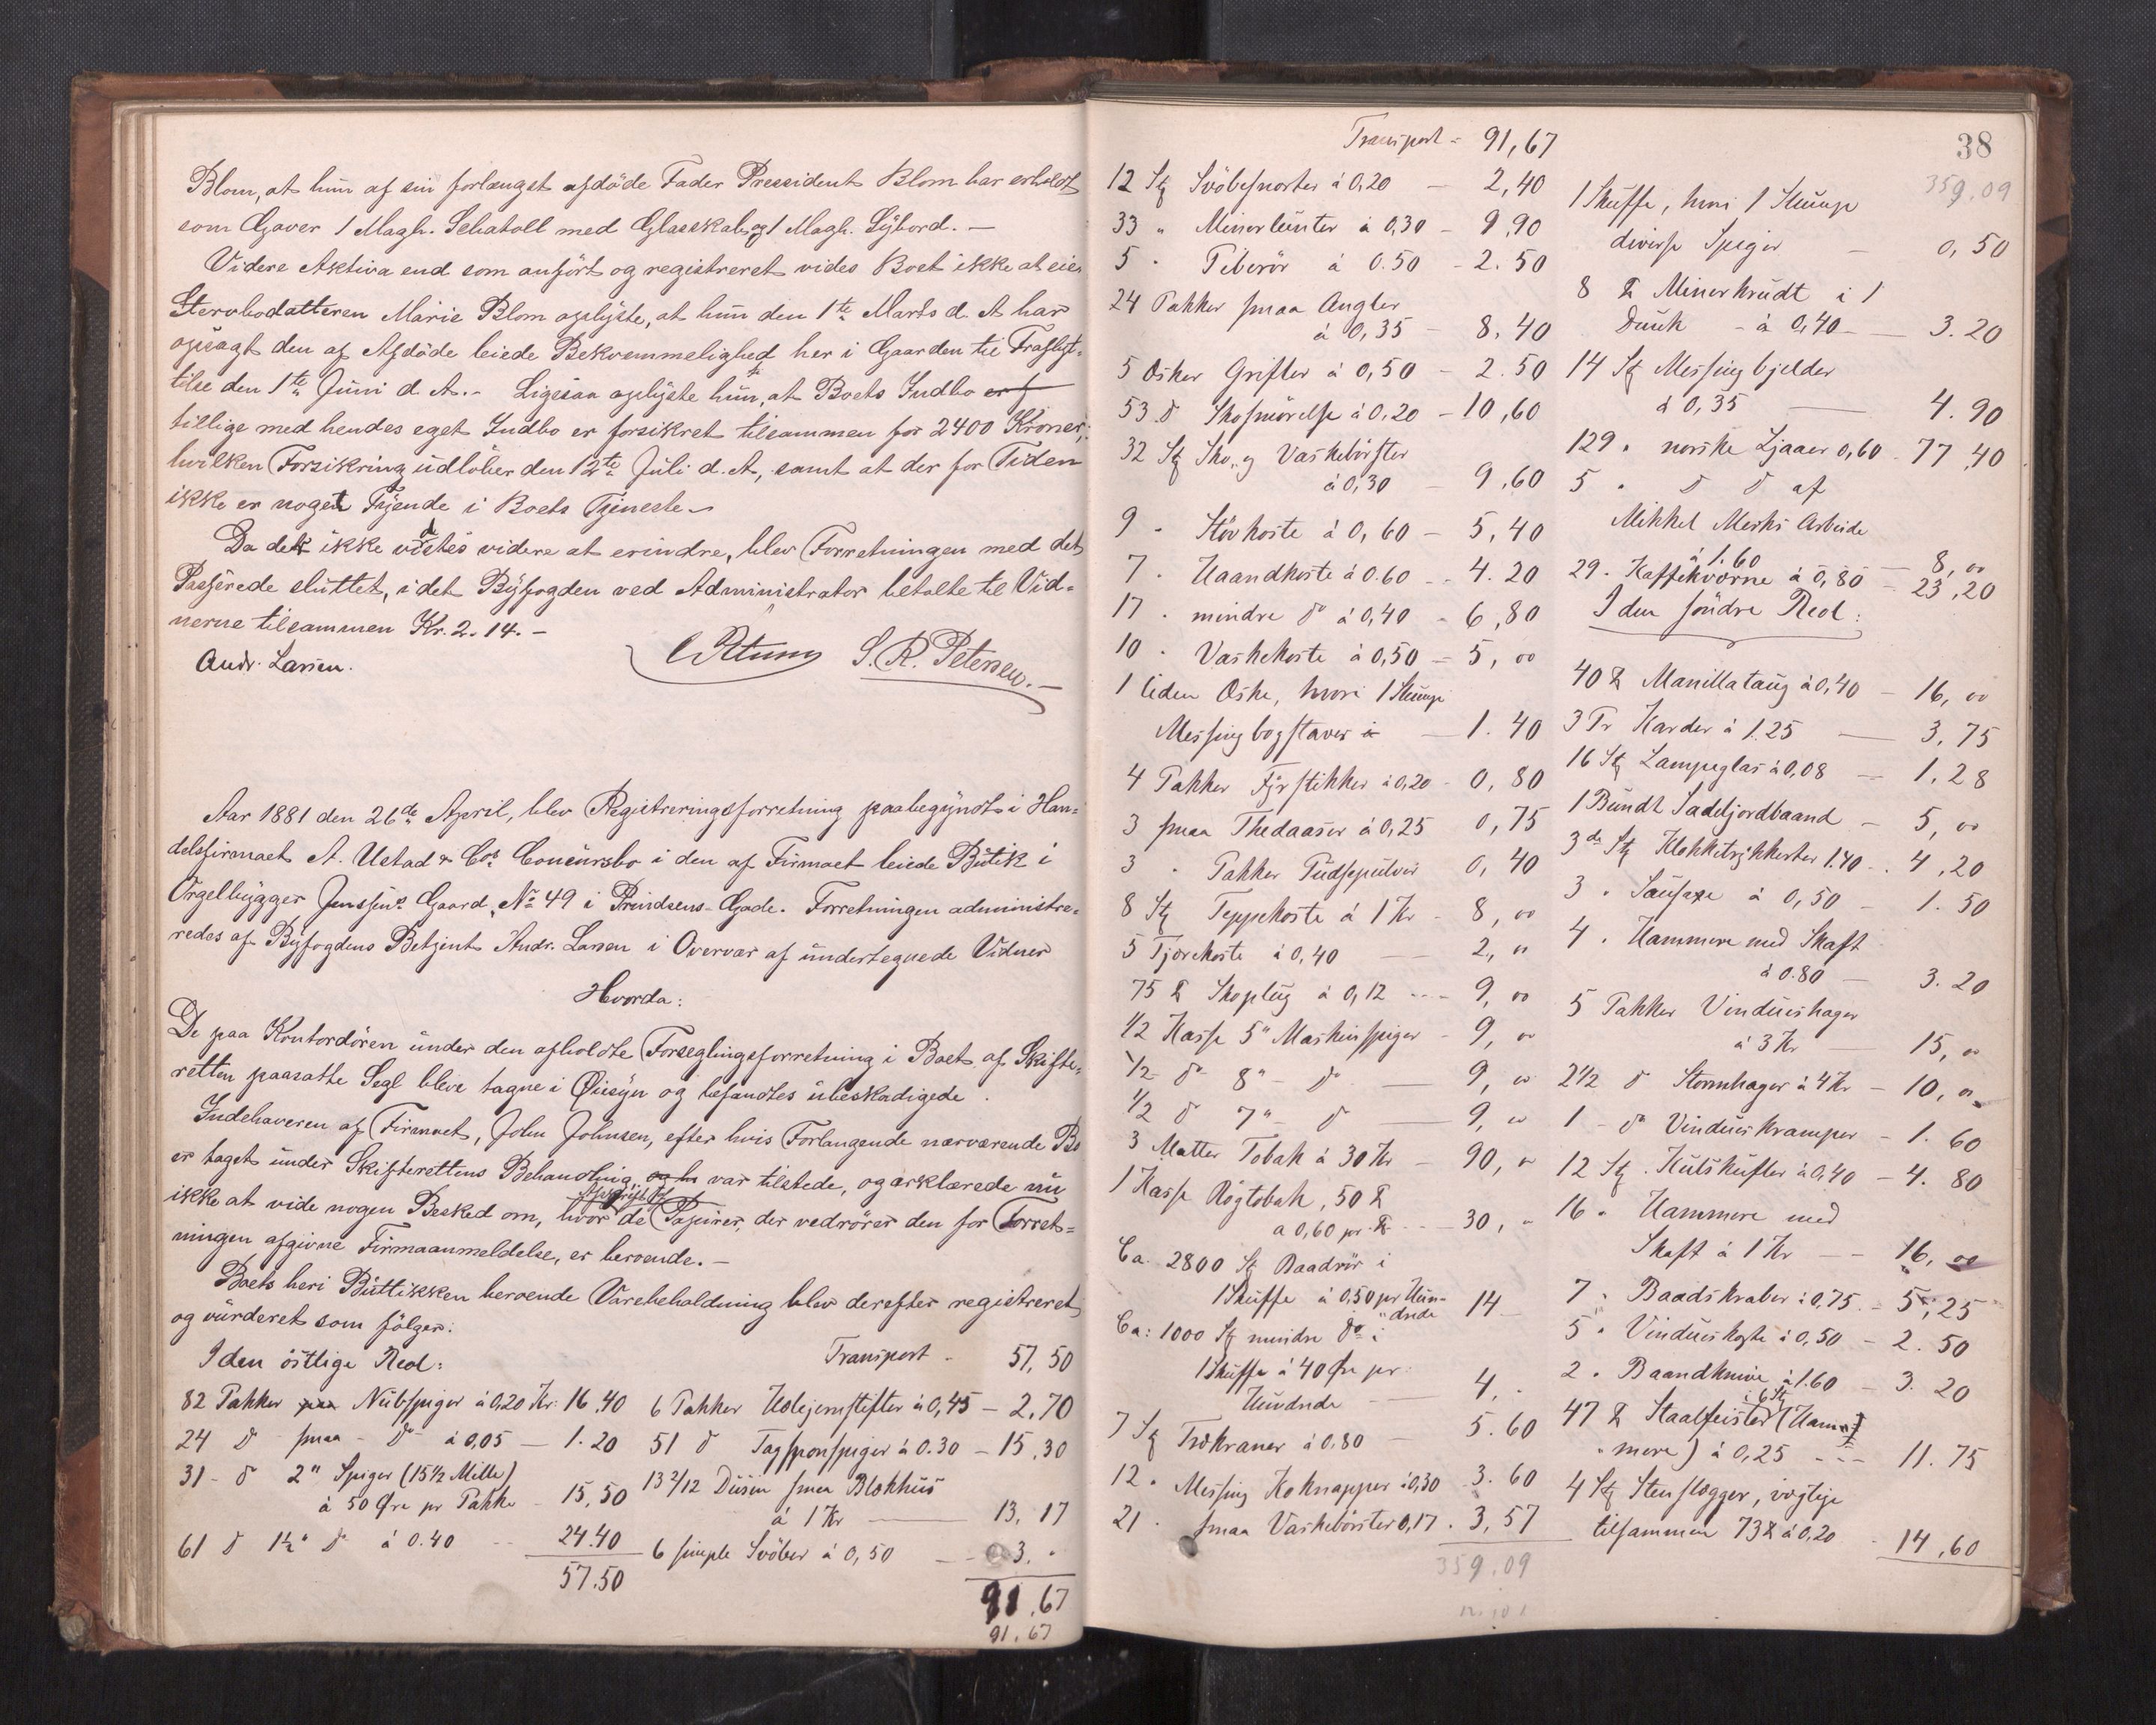 Blom, at hun af sin forlængst afdöde Fader Pressident Blom har erholdt
som Gaver 1 Magh. Schatoll med Glasskab og 1 Magh. Sybord. —
Videre Aktiva end som anfört og registreret vides Boet ikke at eie.
Stervbodatteren Marie Blom oplyste, at hun den 1te Marts d. A. har
opsagt den af Afdöde leiede Bekvemmelighed her i Gaarden til Fraflyt-
telse den 1te Juni d. A. - Ligesaa oplyste hun, at Boets Indbo
tillige med hendes eget Indbo er forsikret tilsammen for 2400 Kroner,
hvilken Forsikring udlöber den 12te Juli d. A., samt at der for Tiden
ikke er noget Tyende i Boets Tjeneste. -
Da det ikke vidstes videre at erindre, blev Forretningen med det
Passerede sluttet, idet Byfogden ved Administrator betalte til Vid-
nerne tilsammen Kr. 2. 14. -
Andr. Larsen. S. R. Petersen. —
Aar 1881 den 26de April, blev Registreringsforretning paabegyndt i Han-
delsfirmaet A. Ustad & Cos Concursbo i den af Firmaet leiede Butik i
Orgelbygger Jenssens Gaard, No 49 i Prindsens-Gade. Forretningen administre-
redes af Byfogdens Betjent Andr. Larsen i Overvær af undertegnede Vidner
Hvorda:
De paa Kontordören under den afholdte Forseglingsforretning i Boet af Skifte-
retten paasatte Segl bleve tagne i Øiesyn og befandtes ubeskadigede.
Indehaveren af Firmaet, John Johnsen, efter hvis Forlangende nærværende Bo
er taget under Skifterettens Behandling, var tilstede, og erklærede nu
ikke at vide nogen Besked om, hvor Afskrift af de Papirer, der vedrörer den for Forret-
ningen afgivne Firmaanmeldelse, er beroende. -
Boets heri Buttikken beroende Varebeholdning blev derefter registreret
og vurderet som fölger:
I den östlige Reol:
82 Pakker Nubspiger à 0,20 Kr. 16.40
24 do smaa - do à 0,05 — 1.20
31 - do 2" Spiger (15½ Mille)
à 50 Øre pr Pakke - 15,50
61 do 1½" do à 0.40 -- 24.40
57.50
Transport - 57,50
6 Pakker Uslejernstifter à 0,45 — 2,70
51 do Tagsponspiger à 0.30 — 15.30
13 2/12 Dusin smaa Blokhus
à 1 Kr — 13,17
6 simple Svöber à 0,50 — 3. "
91.67
91.67
38
Transport = 91,67
12 Stk Svöbesnorter à 0,20 — 2,40
33 " Minerlunter à 0,30 - 9,90
5 " Piberör à 0.50 - 2.50
24 Pakker smaa Angler
à 0,35 - 8.40
5 Æsker Grifler à 0,50 - 2.50
53 do Skosmörelse à 0.20 - 10,60
32 Stk Sko- og Vaskebörster
à 0,30 - 9,60
9 " Stövkoste à 0,60 — 5,40
7 " Haandkoste à 0.60 -- 4.20
17 " mindre do à 0,40 - 6,80
10 " Vaskekoste à 0,50 = 5,00
1 liden Æske, hvori 1 Slump
Messingbogstaver — 1.40
4 Pakker Fyrstikker à 0,20 - 0,80
3 smaa Thedaaser à 0,25 0,75
3 " Pakker Pudsepulver 0,40
8 Stk Teppekoste à 1 Kr - 8,00
5 Tjærekoste à 0,40 — 2,00
75 ℔ Skoplug à 0,12 --- 9,00
1/2 Kasse 5" Maskinspiger - 9,00
1/2 - do 8" - do — 9,00
1/2 do 7" do — 9,00
3 Matter Tobak à 30 Kr — 90,00
1 Kasse Rögtobak, 50 ℔
a 0,60 pr ℔ --- 30, "
Ca. 2800 Stk Baadrör i
1 Skuffe à 0,50 pr Hun-
drede 14 -
Ca: 1000 Stk mindre do i
1 Skuffe à 40 Øre pr
Hundrede — 4, -
7 Stk Trækraner à 0.80 - 5.60
12 " Messing Koknapper à 0,30 - 3.60
21 " smaa Vaskebörster 0,17 . 3,57
359.09
359.09
1 Skuffe, hvori 1 Slump
diverse Spiger — 0,50
8 ℔ Minerkrudt i 1
Dunk - à 0,40 — 3.20
14 Stk Messingbjelder
à 0,35 — 4.90
129 " norske Ljaaer 0,60 - 77,40
5 " do do af
Mikkel Merks Arbeide
à 1,60 — 8,00
29 " Kaffekværne à 0,80 - 23,20
I den söndre Reol:
40 ℔ Manillataug à 0,40 — 16,00
3 Pr Karder à 1.25 — 3,75
16 Stk Lampeglas à 0,08 — 1.28
1 Bundt Sadelgjordbaand — 5,00
3 Stk 1.40 -. 4,20
3 " Sausaxe à 0,50 - 1.50
4 " Hammere med Skaft
à 0.80 — 3.20
5 Pakker Vindueshager
à 3 Kr — 15,00
2 1/2 do Stormhager à 4 Kr — 10,00
1 - do Vindueskramper - 1.60
12 Stk Kulskufler à 0,40 - 4.80
16 " Hammere med
Skaft à 1 Kr — 16,00
7 " Baadskraber à 0,75 - 5,25
5 " Vindueskoste à 0,50 - 2.50
2 " Baandknive à 1.60 - 3.20
47 ℔ Staalfeister 6 Stk (Ham-
mere) à 0,25 --- 11.75
4 Stk Stenslægger, vegtige
tilsammen 73 ℔ à 0,20 - 14,60